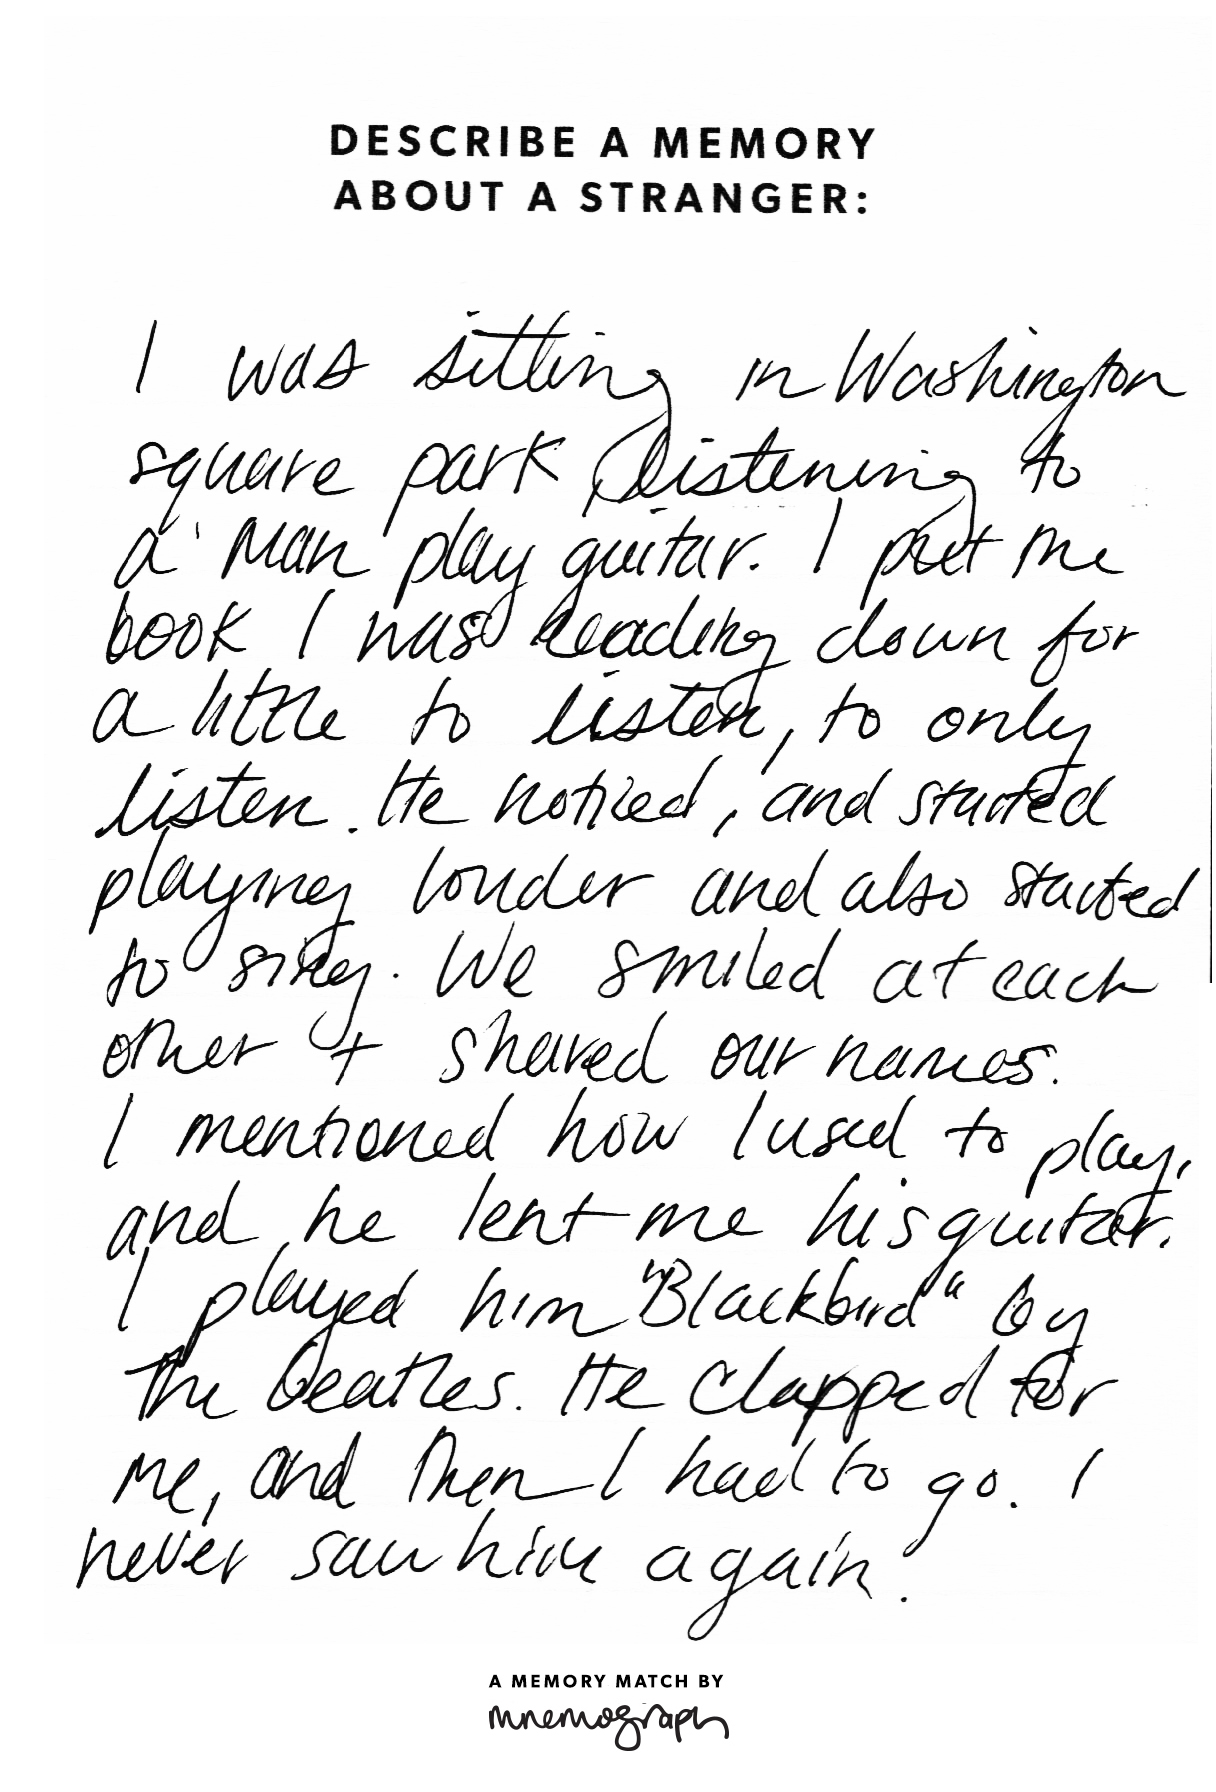 DESCRIBE A MEMORY
ABOUT A STRANGER:
I was sitting in Washington
square park listening to
a man play guitar. I put the
book I was reading down for
a little to listen, to only
listen. He noticed, and started
playing louder and also started
to sing. We smiled at each
other + shared our names.
I mentioned how I used to play,
and he lent me his guitar.
I played him "Blackbird" by
the beatles. He clapped for
me, and then I had to go. I
never saw him again.
A MEMORY MATCH BY
mnemograph